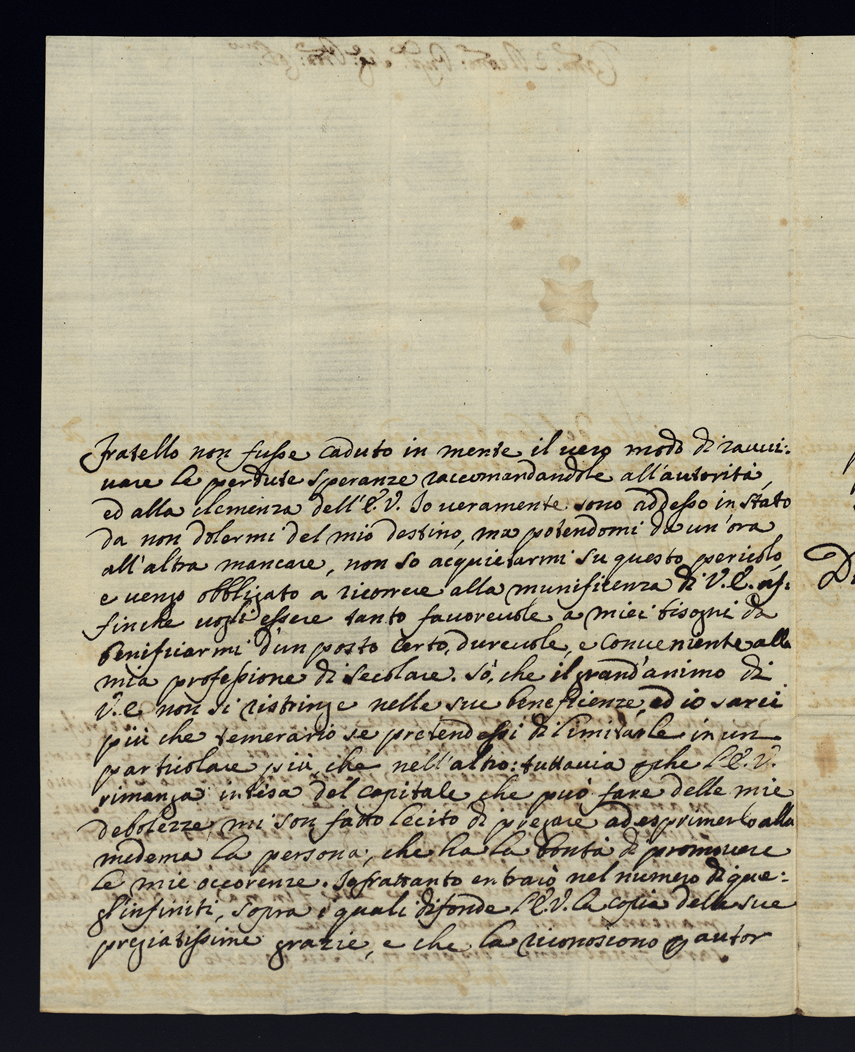 fratello non fusse caduto in mente il vero modo di ravvi:
vare le perdute speranze raccomandandole all'autorità,
ed alla clemenza dell'E.V. Io veramente sono addesso in stato
da non dolermi del mio destino, ma potendomi da un'ora
all'altra mancare, non so acquietarmi su questo pericolo,
e vengo obbligato a ricorrere alla munificenza di V.E. af:
finche vogli essere tanto favorevole a miei bisogni da
benificiarmi d'un posto certo, durevole, e conveniente alla
mia professione di secolare. Sò, che il grand'animo di
V.E. non si ristringe nelle sue beneficienze, ed io sarei
più che temerario se pretendessi di limitarle in un
particolare più, che nell'altro: tuttavia pche l'E.V.
rimanga intesa del capitale, che può fare delle mie
debolezze mi son fatto lecito di pregare ad esprimerlo alla
medema la persona, che ha la bontà di promovere
le mie occorenze. Infrattanto entrarò nel numero di que:
gl'infiniti, sopra i quali difonde l'E.V. la copia delle sue
pregiatissime grazie, e che la riconoscono p autor